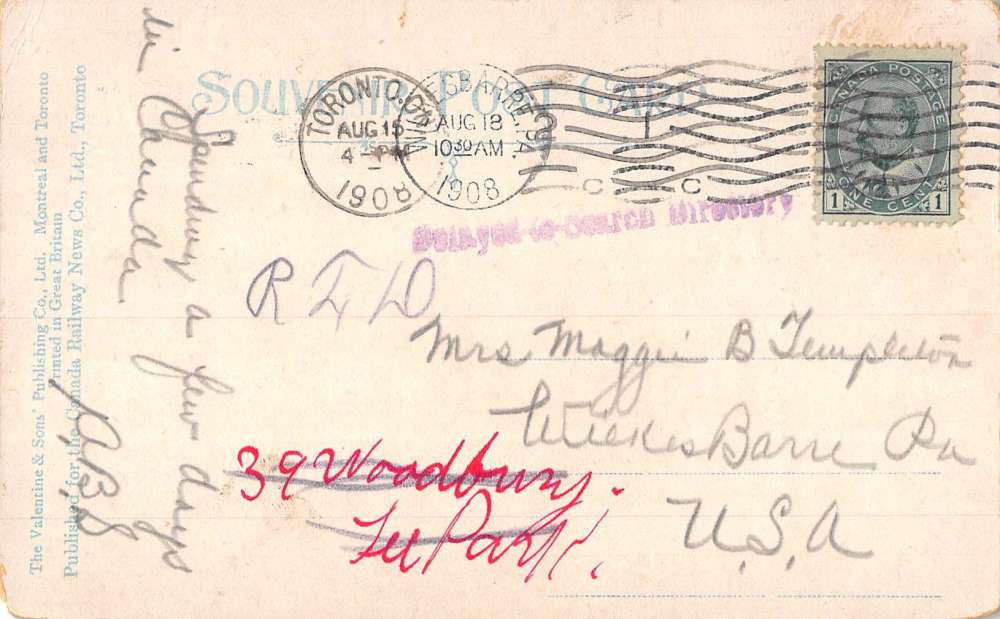 SOUVENIR POST CARD
TORONTO, ONT.
AUG 15
4 - PM
1908
WILKES-BARRE, PA.
AUG 18
10 30 AM
1908
C C
CANADA POSTAGE
1 ONE CENT 1
Delayed-to-Search Directory
R F D
Mrs Maggie B Templeton
Wilkes Barre Pa
U.S.A
39 Woodbury.
Lee Park.
Spending a few days
in Canada
The Valentine & Sons' Publishing Co., Ltd., Montreal and Toronto
Printed in Great Britain
Published for the Canada Railway News Co., Ltd., Toronto